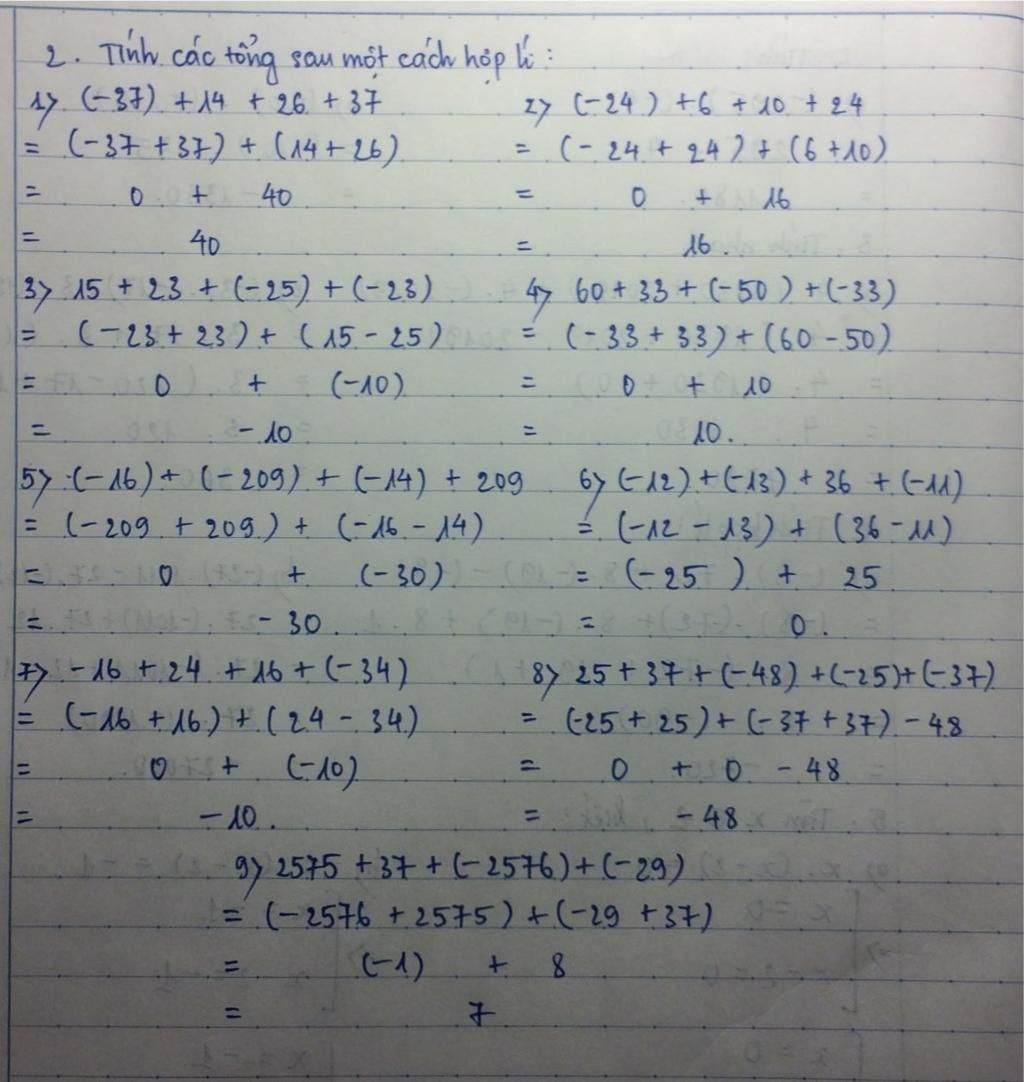 2. Tính các tổng sau một cách hợp lí :
1) (-37) + 14 + 26 + 37
= (-37 + 37) + (14 + 26)
= 0 + 40
= 40
2) (-24) + 6 + 10 + 24
= (-24 + 24) + (6 + 10)
= 0 + 16
= 16.
3) 15 + 23 + (-25) + (-23)
= (-23 + 23) + (15 - 25)
= 0 + (-10)
= -10
4) 60 + 33 + (-50) + (-33)
= (-33 + 33) + (60 - 50)
= 0 + 10
= 10.
5) (-16) + (-209) + (-14) + 209
= (-209 + 209) + (-16 - 14)
= 0 + (-30)
= -30.
6) (-12) + (-13) + 36 + (-11)
= (-12 - 13) + (36 - 11)
= (-25) + 25
= 0.
7) -16 + 24 + 16 + (-34)
= (-16 + 16) + (24 - 34)
= 0 + (-10)
= -10.
8) 25 + 37 + (-48) + (-25) + (-37)
= (-25 + 25) + (-37 + 37) - 48
= 0 + 0 - 48
= -48
9) 2575 + 37 + (-2576) + (-29)
= (-2576 + 2575) + (-29 + 37)
= (-1) + 8
= 7